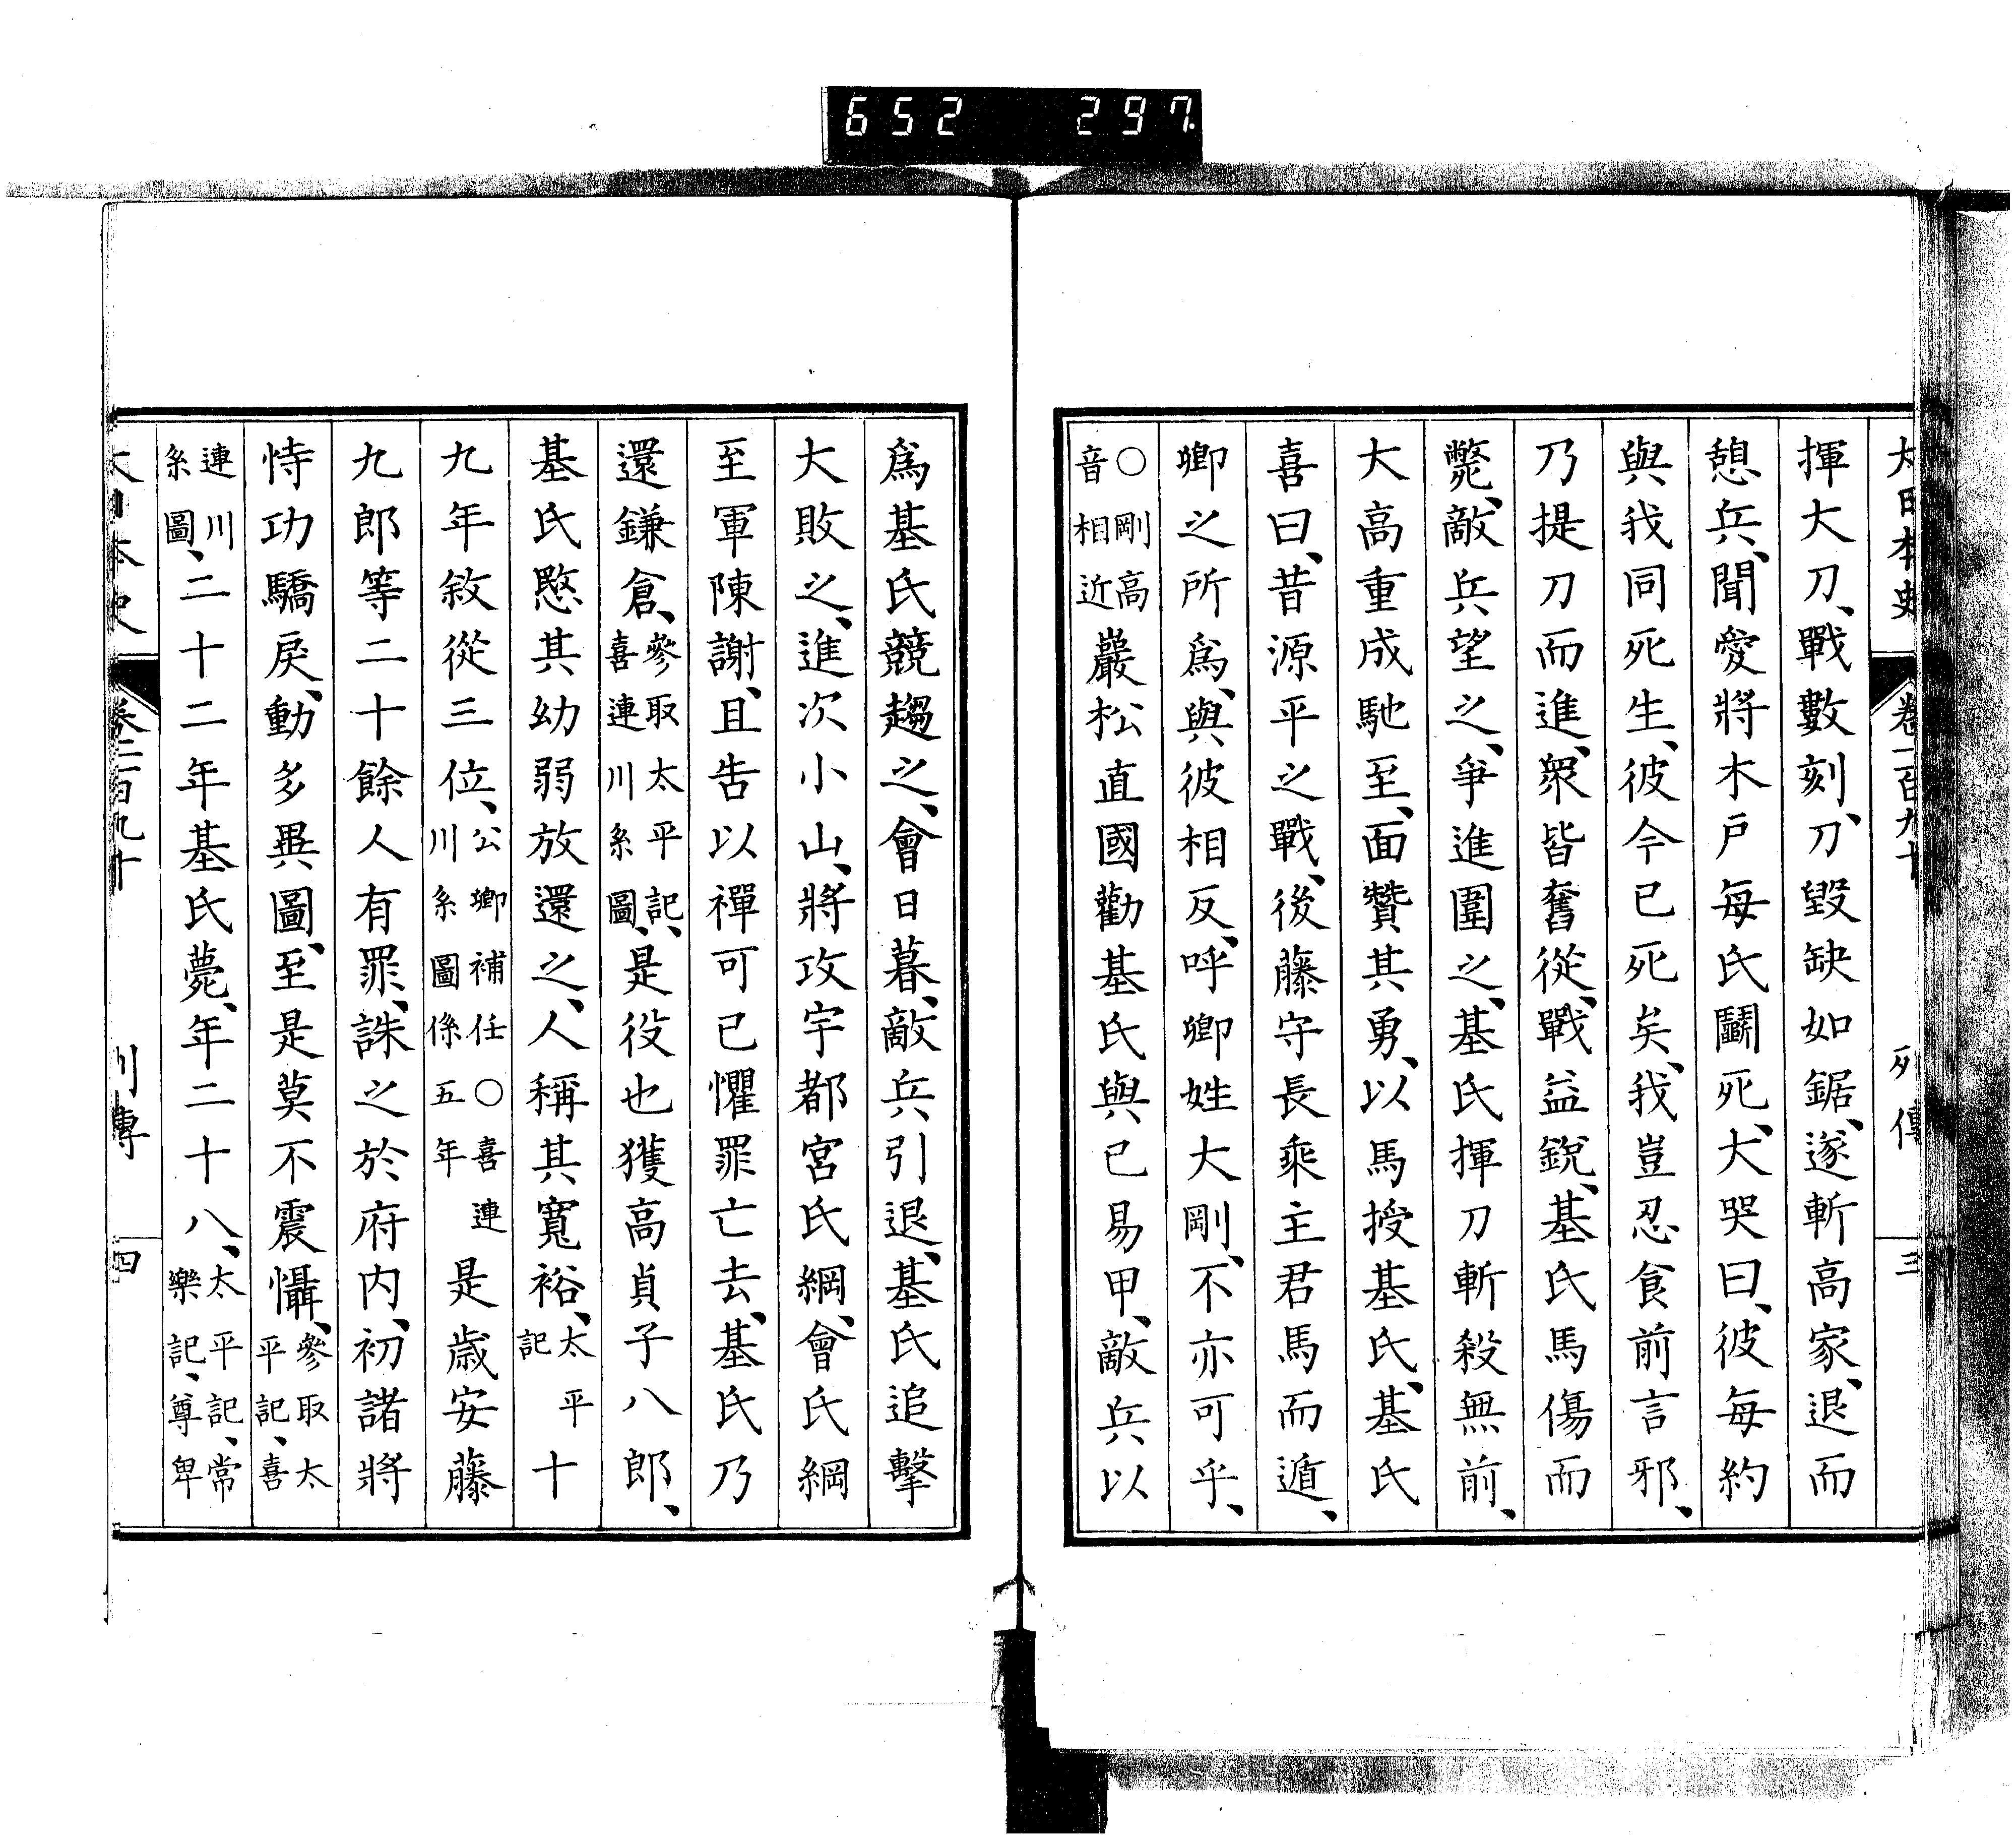 652 297
大日本史 卷二百九十 列傳 三
揮大刀、戰數刻、刀毀缺如鋸、遂斬高家、退而
憩兵、聞愛將木戸每氏鬭死、大哭曰、彼每約
與我同死生、彼今已死矣、我豈忍食前言邪、
乃提刀而進、衆皆奮從、戰益銳、基氏馬傷而
斃、敵兵望之、爭進圍之、基氏揮刀斬殺無前、
大高重成馳至、面贊其勇、以馬授基氏、基氏
喜曰、昔源平之戰、後藤守長乘主君馬而遁、
卿之所爲、與彼相反、呼卿姓大剛、不亦可乎、
○剛高
音相近
巖松直國勸基氏與已易甲、敵兵以
爲基氏競趨之、會日暮、敵兵引退、基氏追擊
大敗之、進次小山、將攻宇都宮氏綱、會氏綱
至軍陳謝、且告以禪可已懼罪亡去、基氏乃
還鎌倉、
參取太平記、
喜連川系圖、
是役也獲高貞子八郎、
基氏愍其幼弱放還之、人稱其寬裕、
太平
記
十
九年敘從三位、
公卿補任○喜連
川系圖係五年
是歲安藤
九郎等二十餘人有罪、誅之於府内、初諸將
恃功驕戾、動多異圖、至是莫不震懾、
參取太
平記、喜
連川
系圖、
二十二年基氏薨、年二十八、
太平記、常
樂記、尊卑
大日本史 卷二百九十 列傳 四